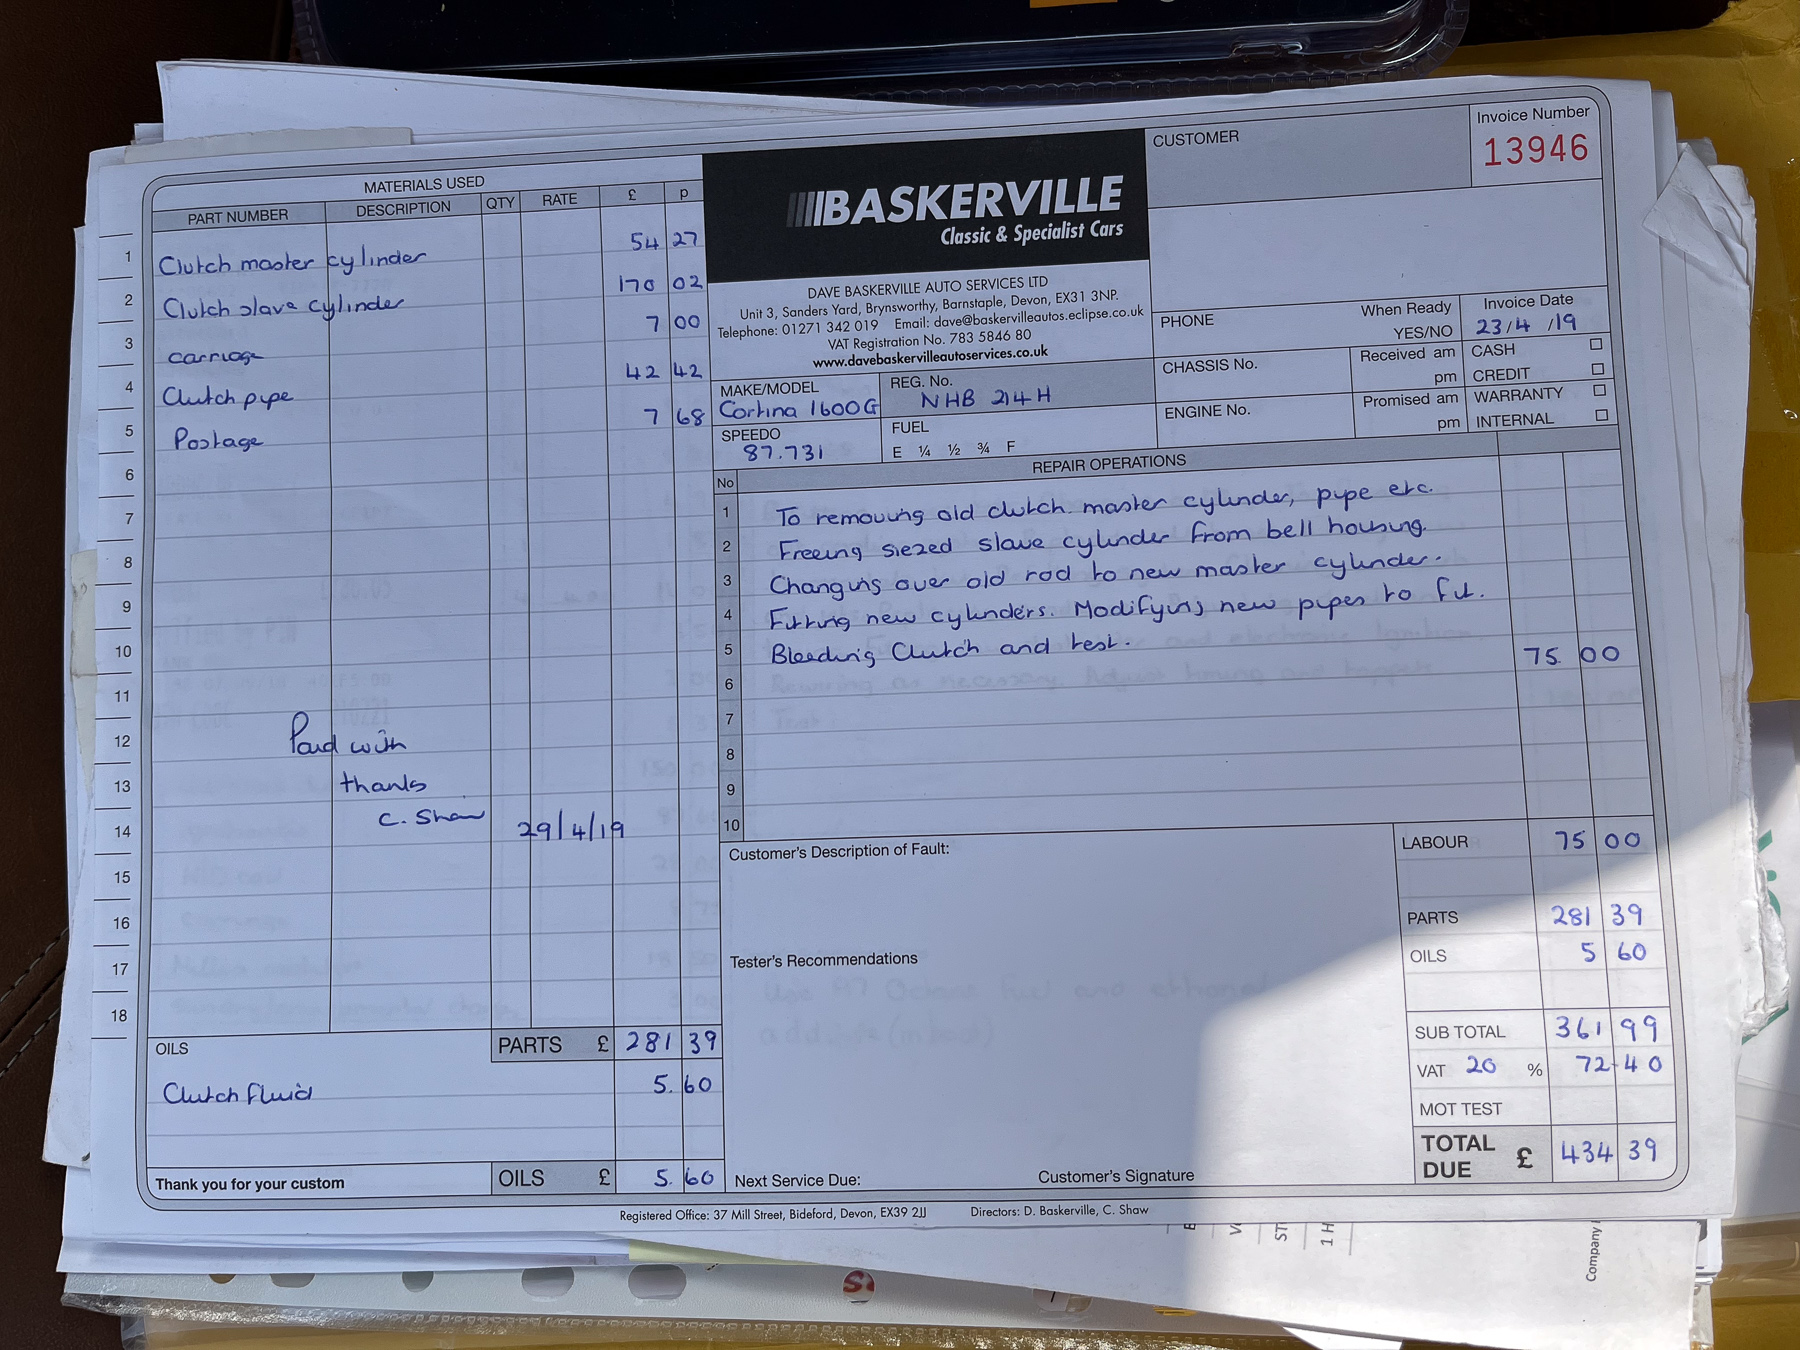 MATERIALS USED
PART NUMBER DESCRIPTION QTY RATE £ p
1 Clutch master cylinder 54 27
2 Clutch slave cylinder 170 02
3 carriage 7 00
4 Clutch pipe 42 42
5 Postage 7 68
6
7
8
9
10
11
12 Paid with
13 thanks
14 C. Shaw 29/4/19
15
16
17
18
OILS PARTS £ 281 39
Clutch Fluid 5. 60
Thank you for your custom OILS £ 5. 60
BASKERVILLE
Classic & Specialist Cars
DAVE BASKERVILLE AUTO SERVICES LTD
Unit 3, Sanders Yard, Brynsworthy, Barnstaple, Devon, EX31 3NP.
Telephone: 01271 342 019 Email: dave@baskervilleautos.eclipse.co.uk
VAT Registration No. 783 5846 80
www.davebaskervilleautoservices.co.uk
CUSTOMER
Invoice Number
13946
PHONE
When Ready
YES/NO
Invoice Date
23/4/19
MAKE/MODEL
Cortina 1600G
REG. No.
NHB 214H
CHASSIS No.
Received am
pm
CASH
CREDIT
SPEEDO
87.731
FUEL
E ¼ ½ ¾ F
ENGINE No.
Promised am
pm
WARRANTY
INTERNAL
No REPAIR OPERATIONS
1 To removing old clutch. master cylinder, pipe etc.
2 Freeing siezed slave cylinder from bell housing.
3 Changing over old rod to new master cylinder.
4 Fitting new cylinders. Modifying new pipes to fit.
5 Bleeding Clutch and test. 75 00
6
7
8
9
10
Customer's Description of Fault:
Tester's Recommendations
Next Service Due: Customer's Signature
LABOUR 75 00
PARTS 281 39
OILS 5 60
SUB TOTAL 361 99
VAT 20 % 72-40
MOT TEST
TOTAL DUE £ 434 39
Registered Office: 37 Mill Street, Bideford, Devon, EX39 2JJ Directors: D. Baskerville, C. Shaw
Company